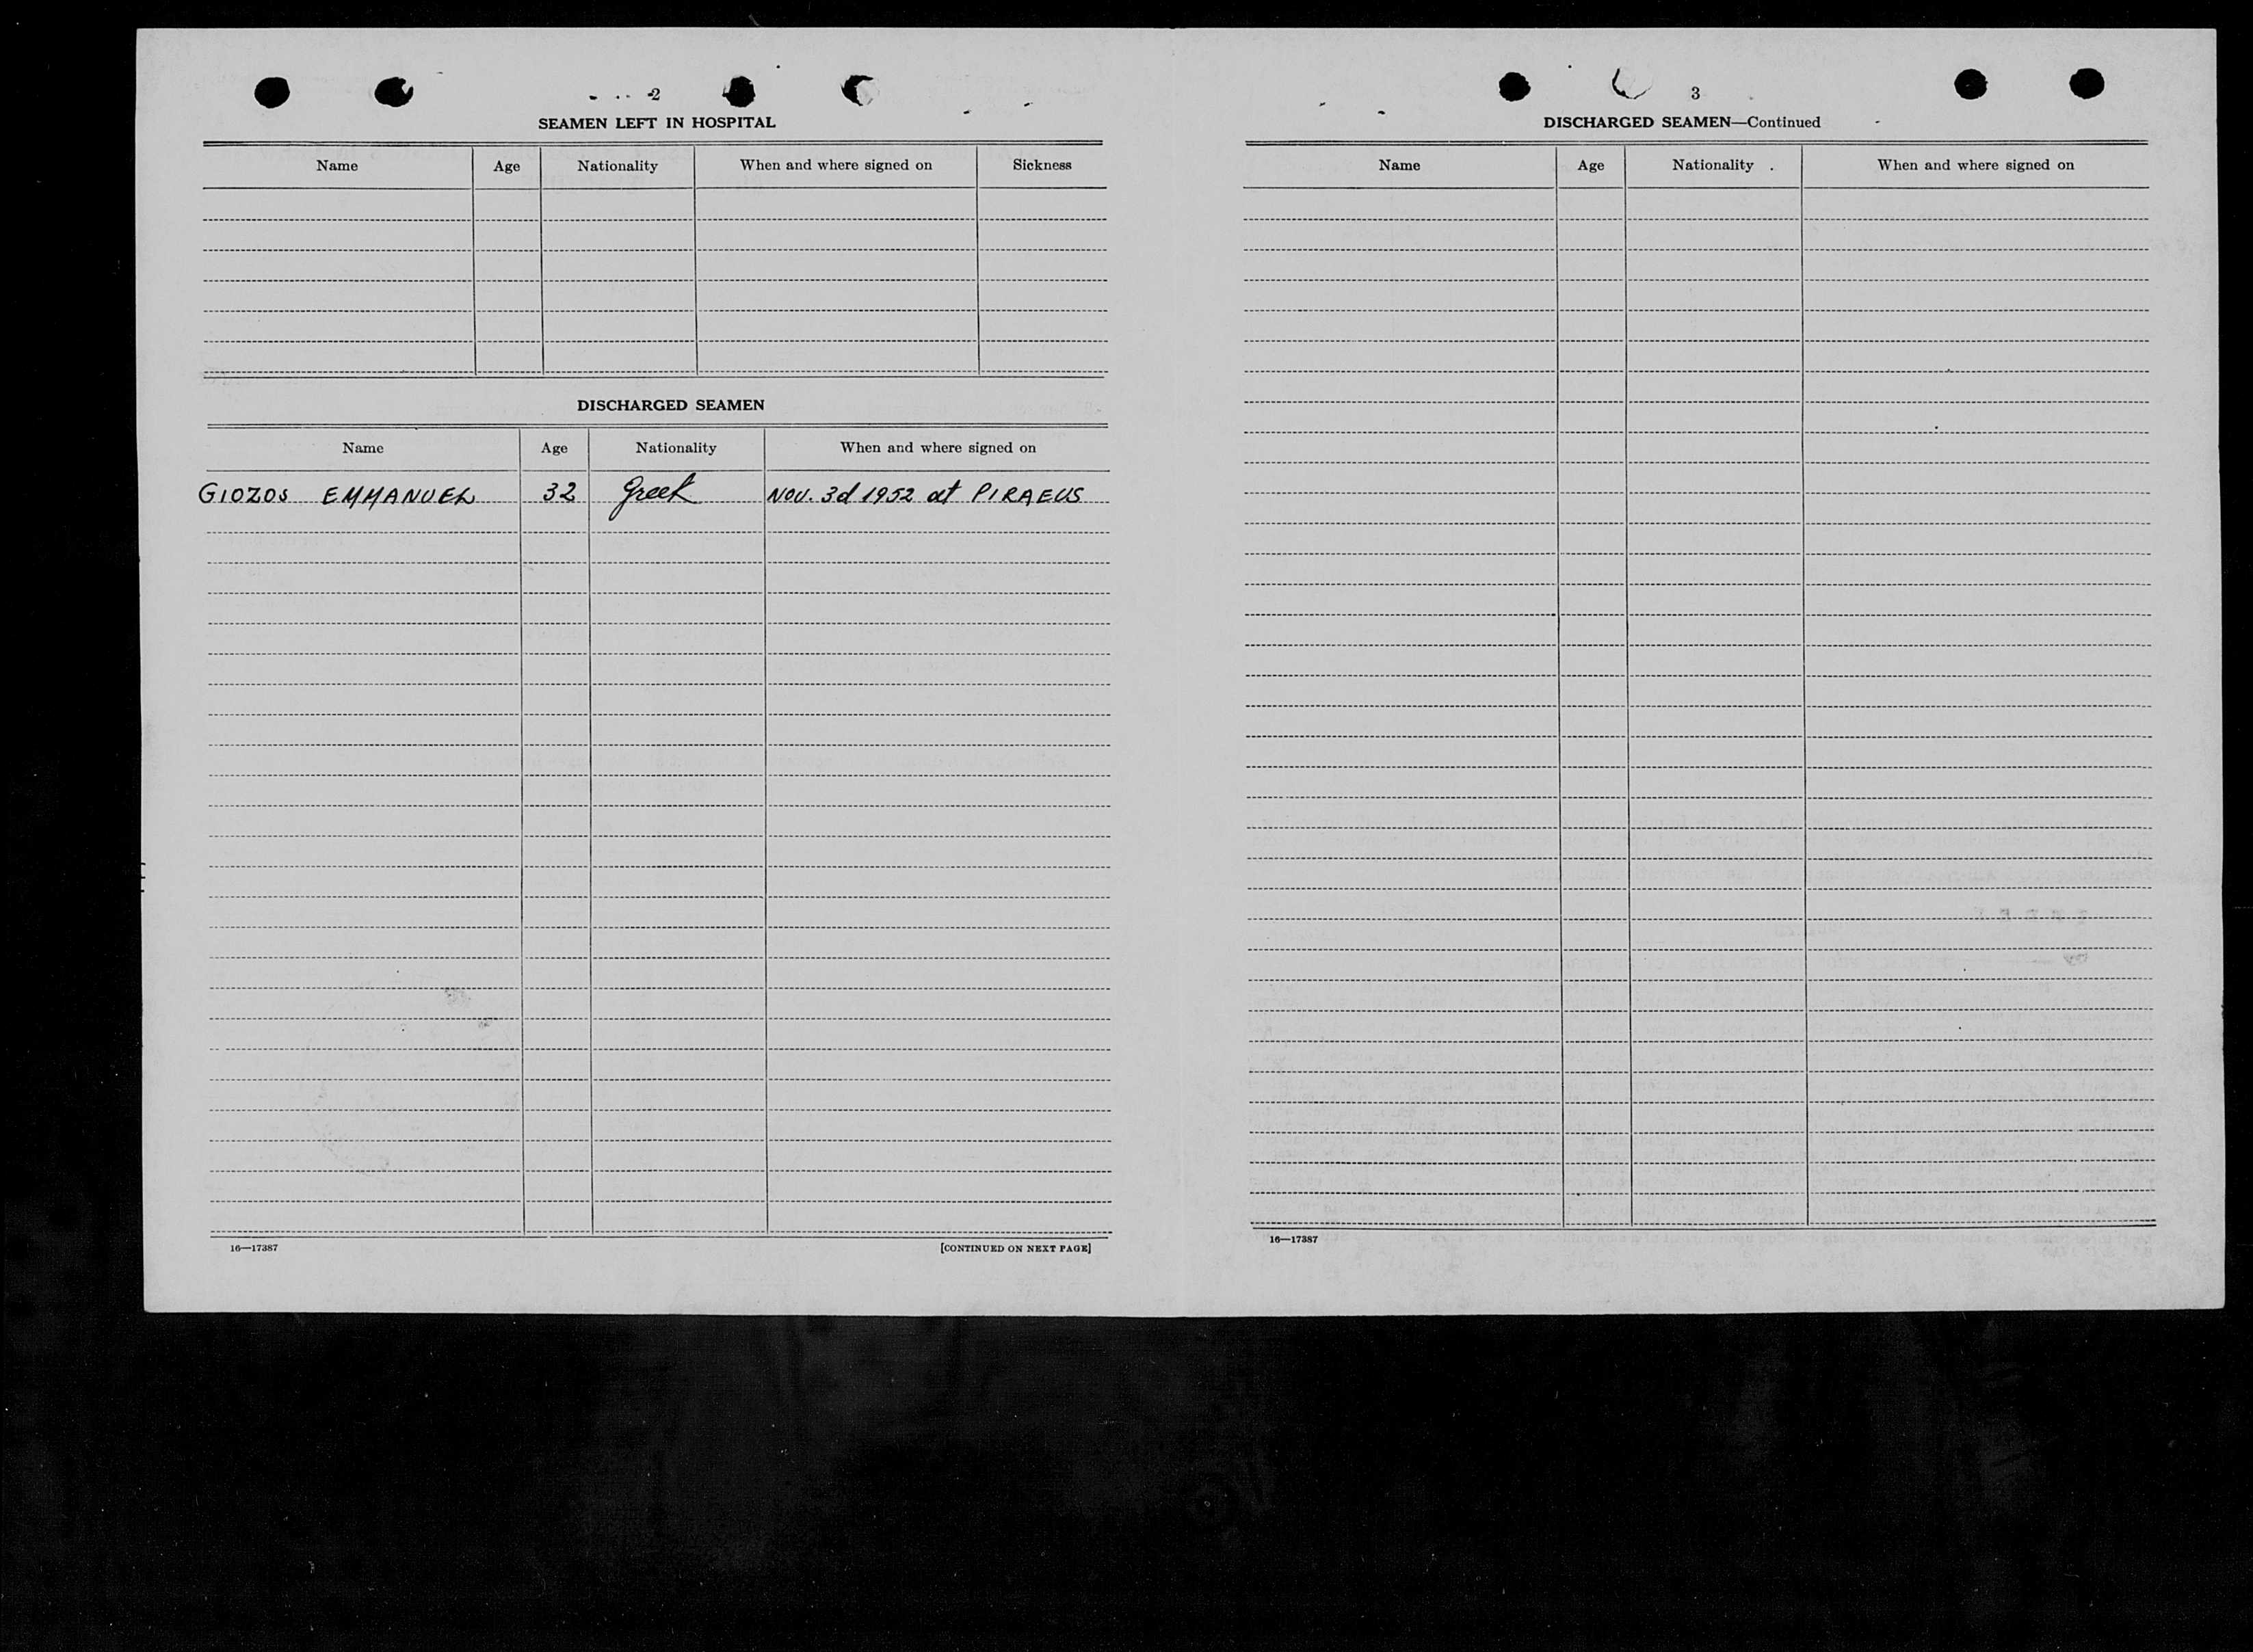 2
SEAMEN LEFT IN HOSPITAL
Name Age Nationality When and where signed on Sickness
DISCHARGED SEAMEN
Name Age Nationality When and where signed on
GIOZOS EMMANUEL 32 Greek NOV. 3d 1952 at PIRAEUS
16—17387 [CONTINUED ON NEXT PAGE]
3
DISCHARGED SEAMEN—Continued
Name Age Nationality When and where signed on
16—17387